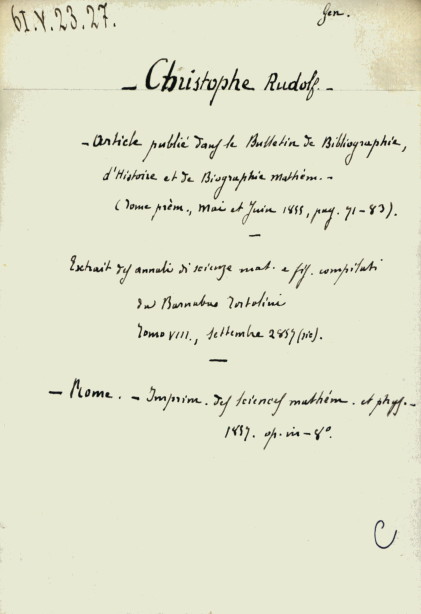 61.V.23.27.
Gen.
- Christophe Rudolf. -
- Article publié dans le Bulletin de Bibliographie,
d'Histoire et de Biographie mathém. -
(Tome prém., Mai et Juin 1855, pag. 71-83).
Extrait des annali di scienze mat. e fis. compilati
da Barnabas Tortolini
Tomo VIII., settembre 1857 (sic).
- Rome. - Imprim. des sciences mathém. et phys. -
1857. op. in-8°.
C